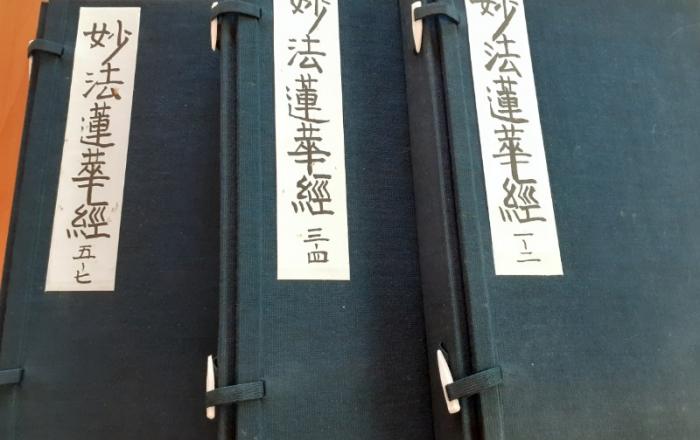 妙法蓮華經 一-二
妙法蓮華經 三-四
妙法蓮華經 五-七